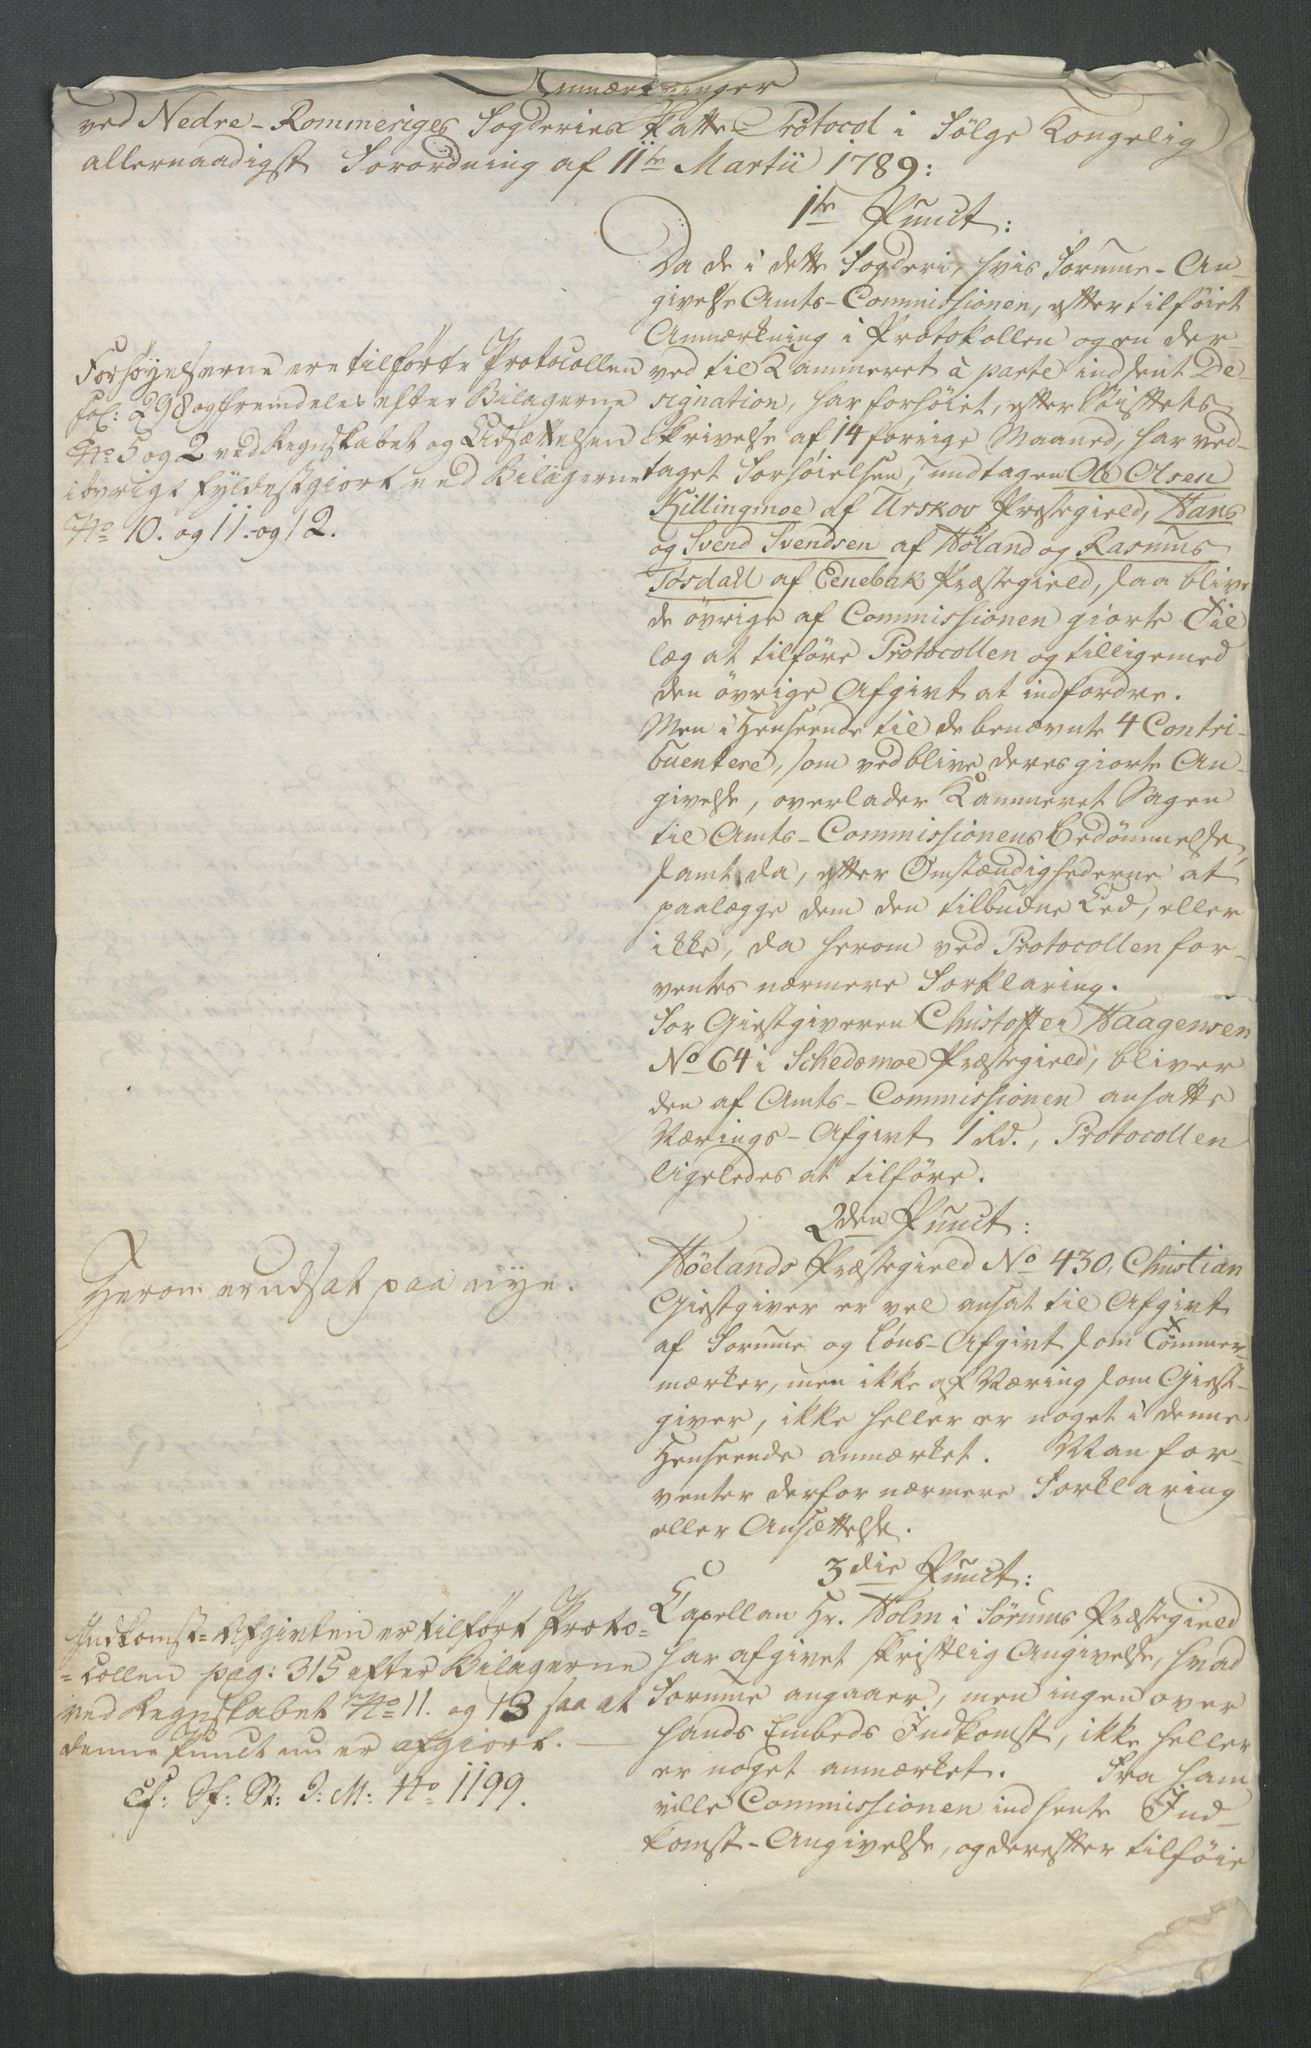 Anmærkninger
ved Nedre-Rommeriges Fogderies Skatte-Protocol i Følge Kongelig
allernaadigst Forordning af 11te Martii 1789:
1te Punct:
Da de i dette Fogderi, hvis Formue-An-
givelse Amts-Commissionen, efter tilføiet
Anmærkning i Protokollen og en der-
ved til Kammeret à parte indsent De-
signation, har forhøiet, efter Stiftets
Skrivelse af 14 forrige Maaned, har ved-
taget Forhøielsen, undtagen Ole Olsen
Killingmoe af Urskov Præstegield, Hans
og Svend Svendsen af Høland og Rasmus
Tosdall af Eenebak Præstegield, saa blive
de øvrige af Commissionen giorte Til
læg at tilføre Protocollen og tilligemed
den øvrige Afgivt at indfordre.
Men i Henseende til de benævnte 4 Contri-
buentere, som vedblive deres giorte An-
givelse, overlader Kammeret Sagen
til Amts-Commissionens Bedømmelse,
samt da, efter Omstændighederne at
paalægge dem den tilbudne Eed, eller
ikke, da herom ved Protocollen for-
ventes nærmere Forklaring.
For Giestgiveren Christoffer Haagensen
No 64 i Schedsmoe Præstegield, bliver
den af Amts-Commissionen ansatte
Nærings-Afgivt 1 Rd., Protocollen
ligeledes at tilføre.
Forhøyelserne ere tilførte Protocollen
fol: 298 og fremdeles efter Bilagerne
No 5 og 2 ved Regnskabet og Udsættelsen
i øvrigt fyldestgiort ved Bilagerne
No 10. og 11. og 12.
2den Punct:
Hølands Præstegield No 430. Christian
Giestgiver er vel ansat til Afgivt
af Formue og Løns-Afgivt som Tømmer-
mærker, men ikke af Næring som Giest-
giver, ikke heller er noget i denne
Henseende anmærket. Man for-
venter derfor nærmere Forklaring
eller Ansættelse.
Herom er udsat paa nye.
3die Punct:
Capellan Hr. Holm i Sørums Præstegield
har afgivet skriftlig Angivelse, hvad
Formue angaaer, men ingen over
hands Embeds Indkomst, ikke heller
er noget anmærket. Fra ham
ville Commissionen indhente Ind-
komst-Angivelse, og derefter tilføie
Indkomst-Afgivten er tilført Proto-
-collen pag: 315 efter Bilagerne
ved Regnskabet No 11. og 13 saa at
denne Punct nu er afgiort.
Cf: Df: St: J: M: No 1199.